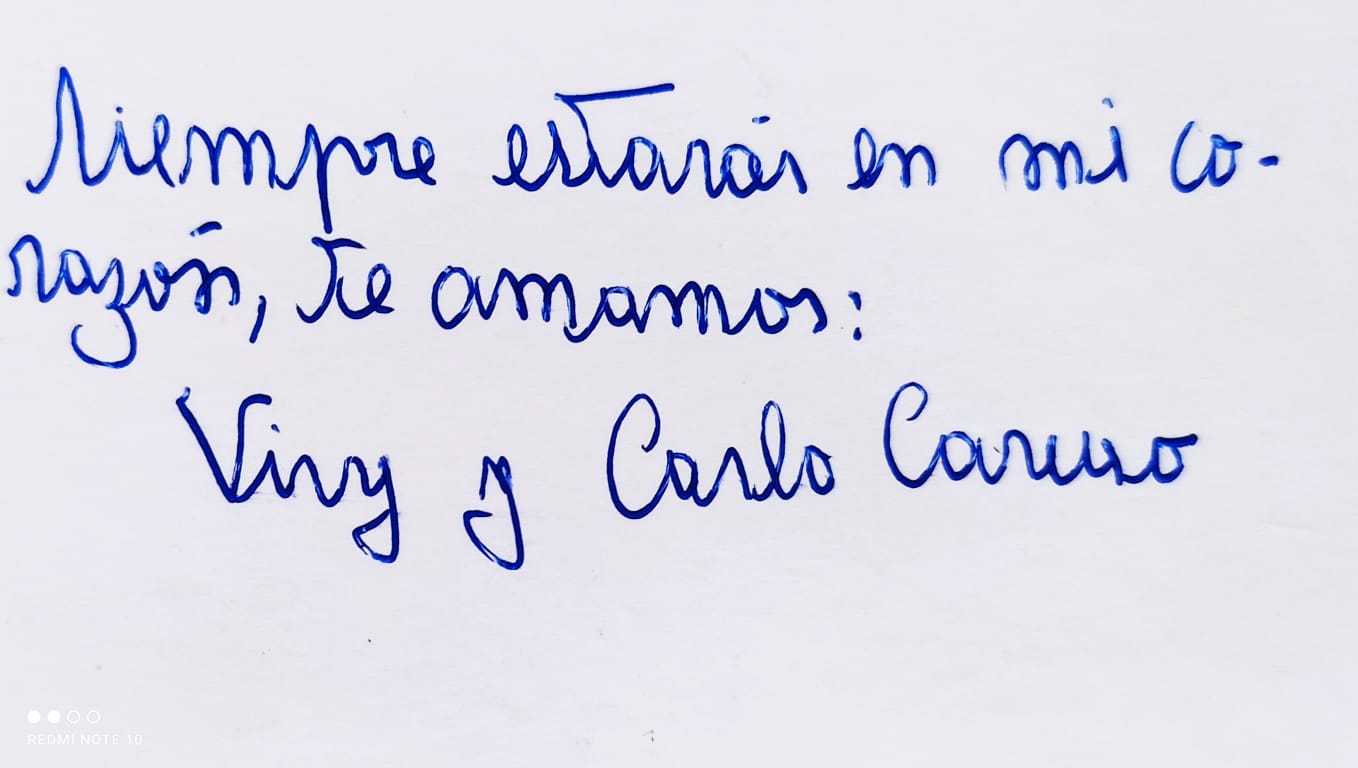 Siempre estarás en mi co-
razón, te amamos:
Vivy y Carlo Caruso
REDMI NOTE 10